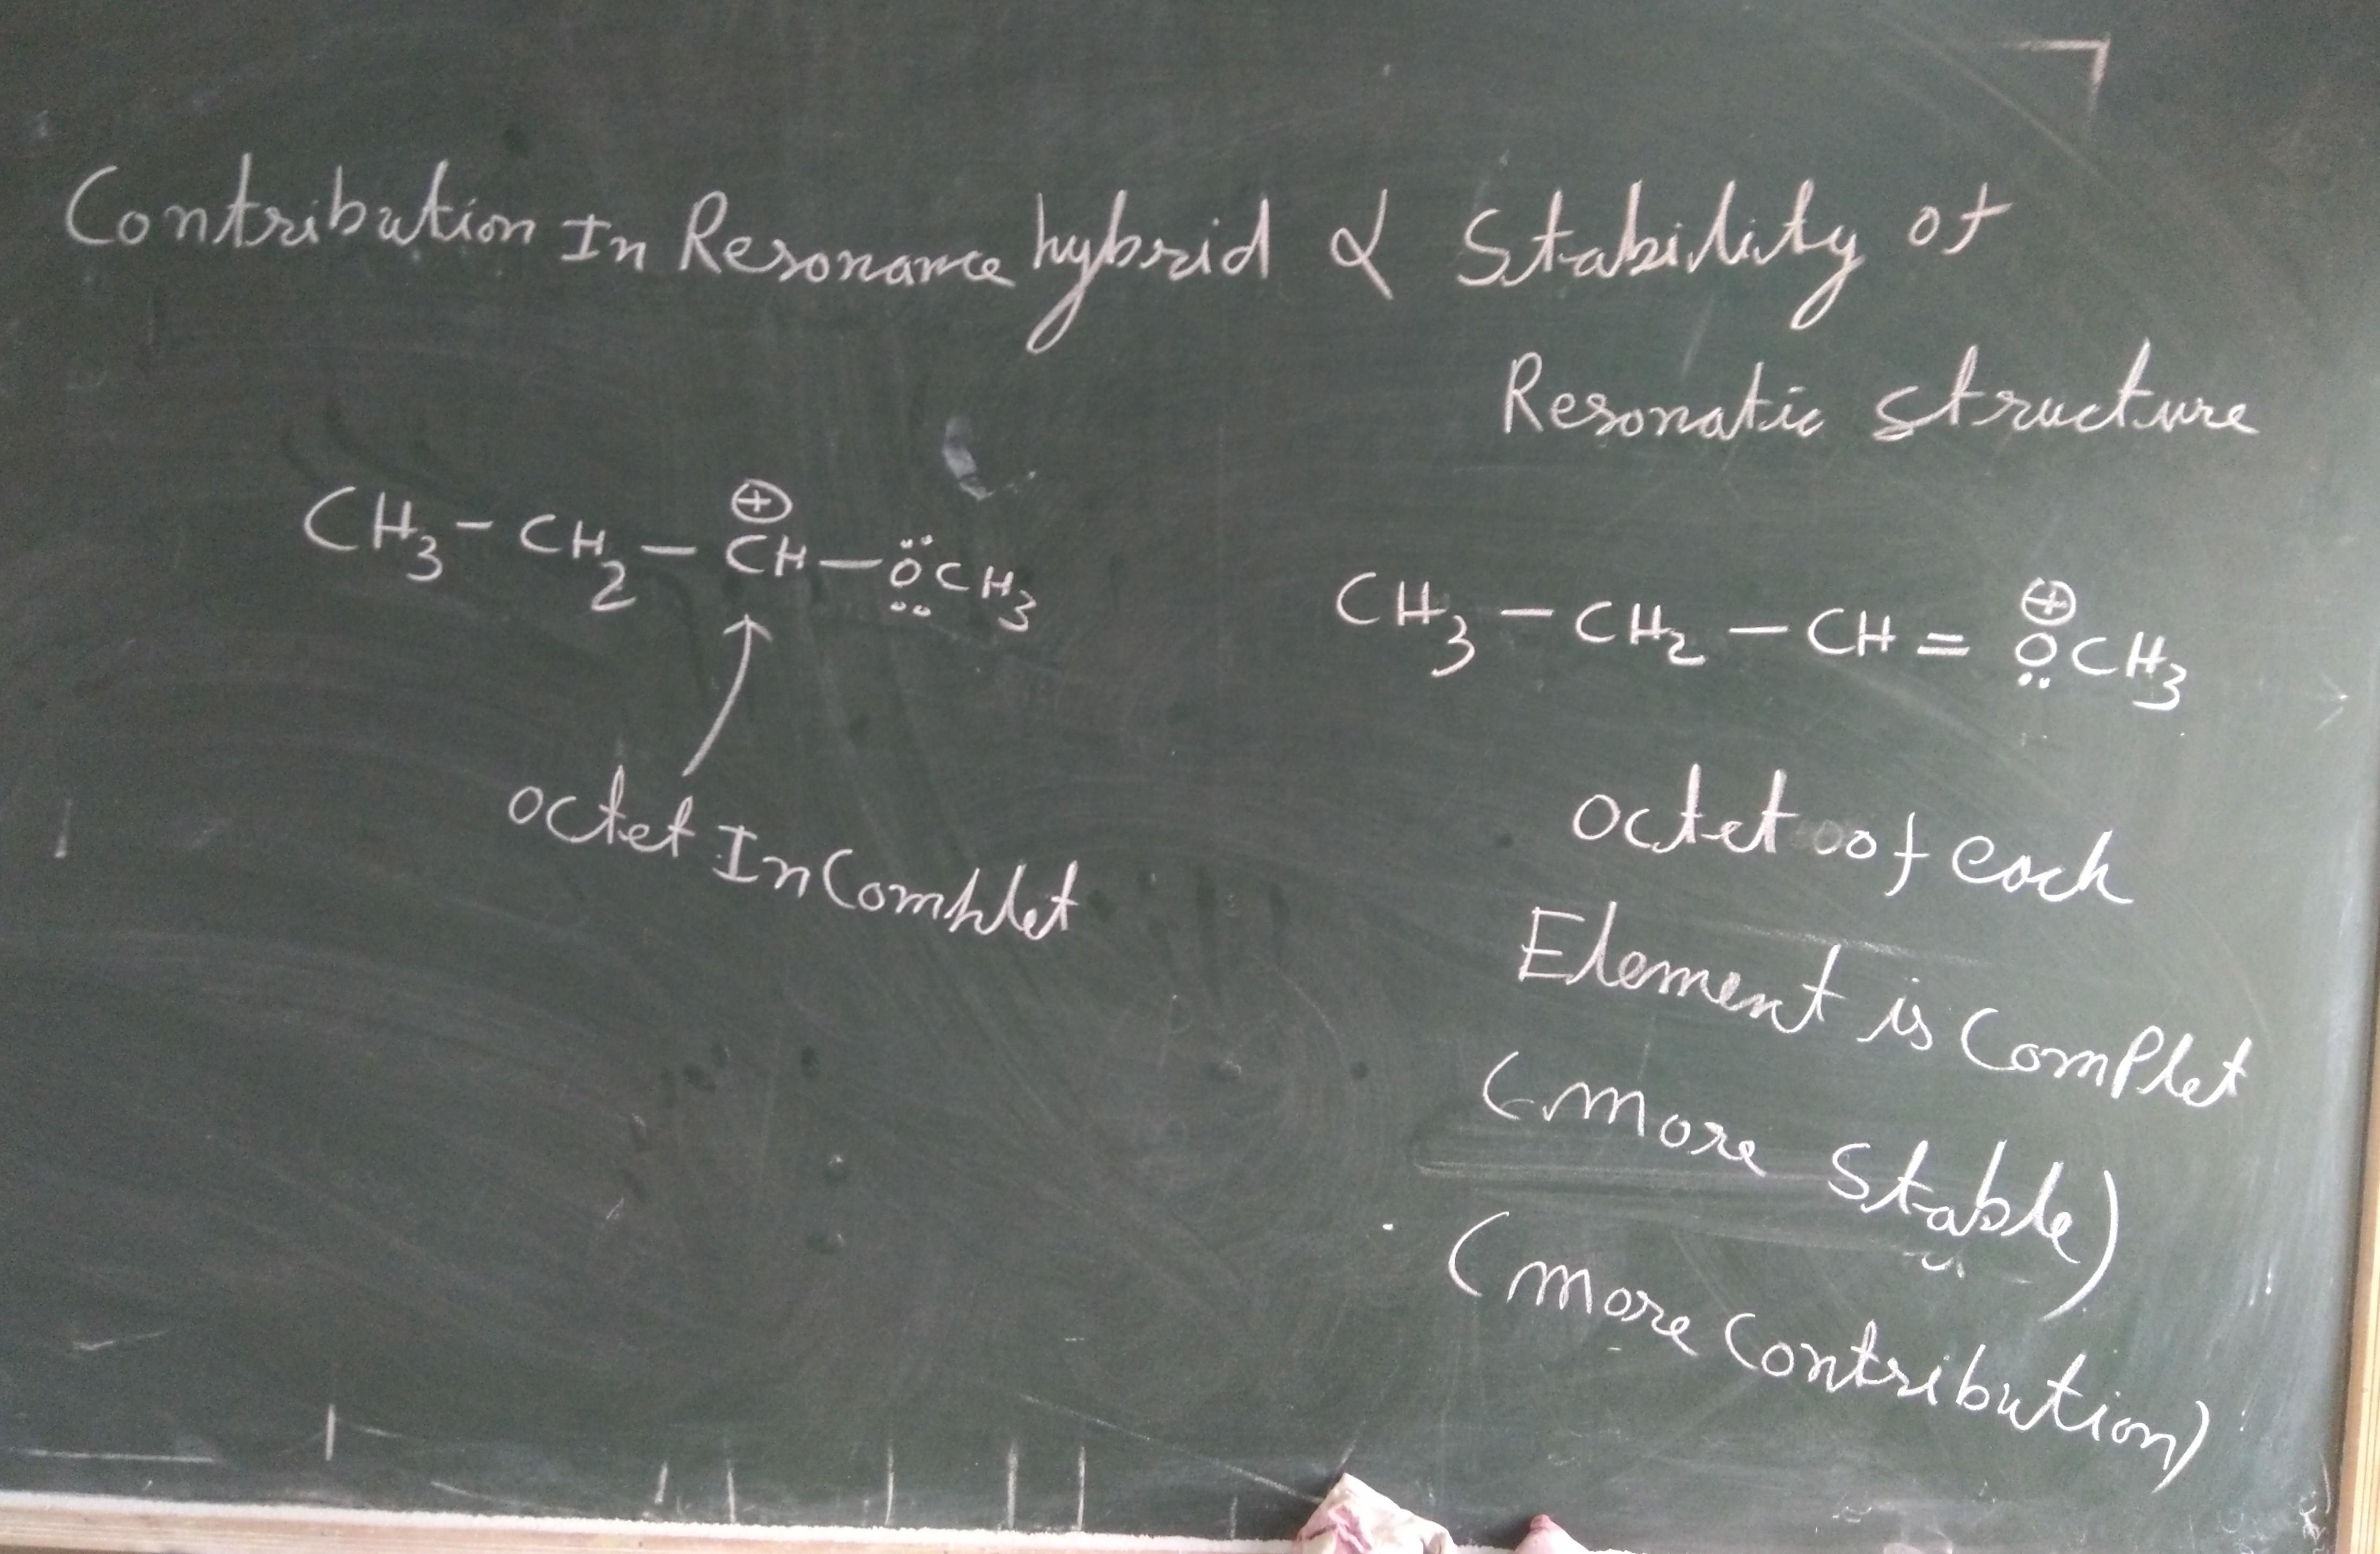 Contribution In Resonance hybrid α Stability of
Resonatic structure
CH3 - CH2 - C⊕H - ÖCH3
CH3 - CH2 - CH = O⊕CH3
octet InComplet
octet oof each
Element is ComPlet
(more stable)
(more Contribution)